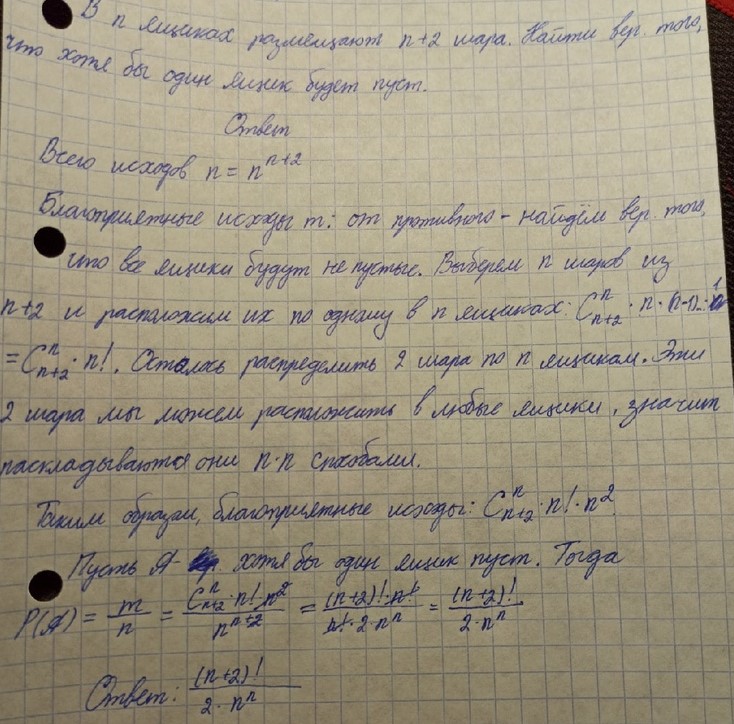 В n ящиках размещают n+2 шара. Найти вер. того,
что хотя бы один ящик будет пуст.
Ответ
Всего исходов n = n^{n+2}
Благоприятные исходы m: от противного - найдём вер. того,
что все ящики будут не пустые. Выберем n шаров из
n+2 и расположим их по одному в n ящиках: C_{n+2}^{n} · n · (n-1)...· 1
= C_{n+2}^{n} · n!. Осталось распределить 2 шара по n ящикам. Эти
2 шара мы можем расположить в любые ящики, значит
раскладываются они n·n способами.
Таким образом, благоприятные исходы: C_{n+2}^{n} · n! · n^2
Пусть A - хотя бы один ящик пуст. Тогда
P(A) = m/n = (C_{n+2}^{n} · n! · n^2)/(n^{n+2}) = ((n+2)! · n!)/(n! · 2 · n^n) = (n+2)!/(2 · n^n)
Ответ: (n+2)!/(2 · n^n)